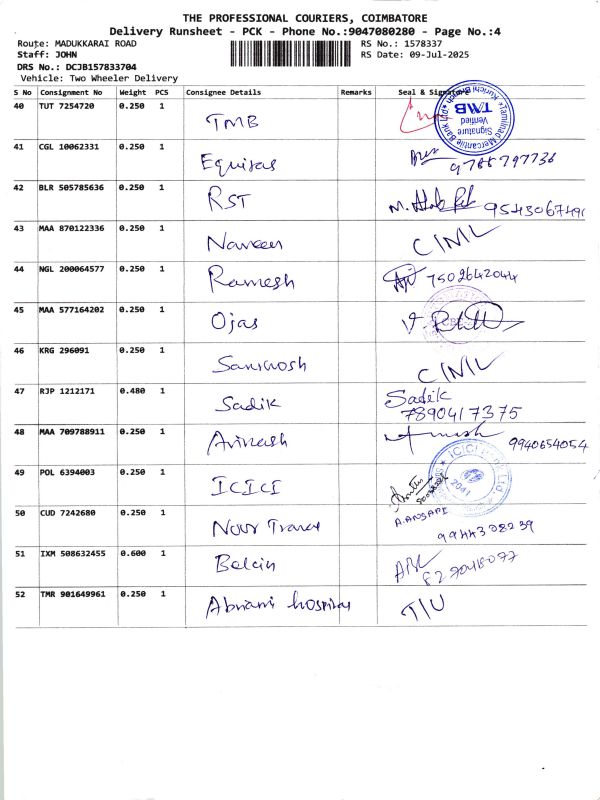 THE PROFESSIONAL COURIERS, COIMBATORE
Delivery Runsheet - PCK - Phone No.:9047080280 - Page No.:4
Route: MADUKKARAI ROAD RS No.: 1578337
Staff: JOHN RS Date: 09-Jul-2025
DRS No.: DCJB157833704
Vehicle: Two Wheeler Delivery
S No Consignment No Weight PCS Consignee Details Remarks Seal & Signature
40 TUT 7254720 0.250 1 TMB
Tamilnad Mercantile Bank Ltd
Signature
Verified
TMB
41 CGL 10062331 0.250 1 Equitas
9788797736
42 BLR 505785636 0.250 1 RST 9543067491
43 MAA 870122336 0.250 1 Naveen C/NIL
44 NGL 200064577 0.250 1 Ramesh 7502642044
45 MAA 577164202 0.250 1 Ojas
46 KRG 296091 0.250 1 C/NIL
47 RJP 1212171 0.480 1 Sadik Sadik
7890417375
48 MAA 709788911 0.250 1 Avinash 9940654054
49 POL 6394003 0.250 1 ICICI
ICICI Bank Ltd.
2041
50 CUD 7242680 0.250 1 A.ANSARI
9944308239
51 IXM 508632455 0.600 1
8270418077
52 TMR 901649961 0.250 1 Abirami hospital T/U